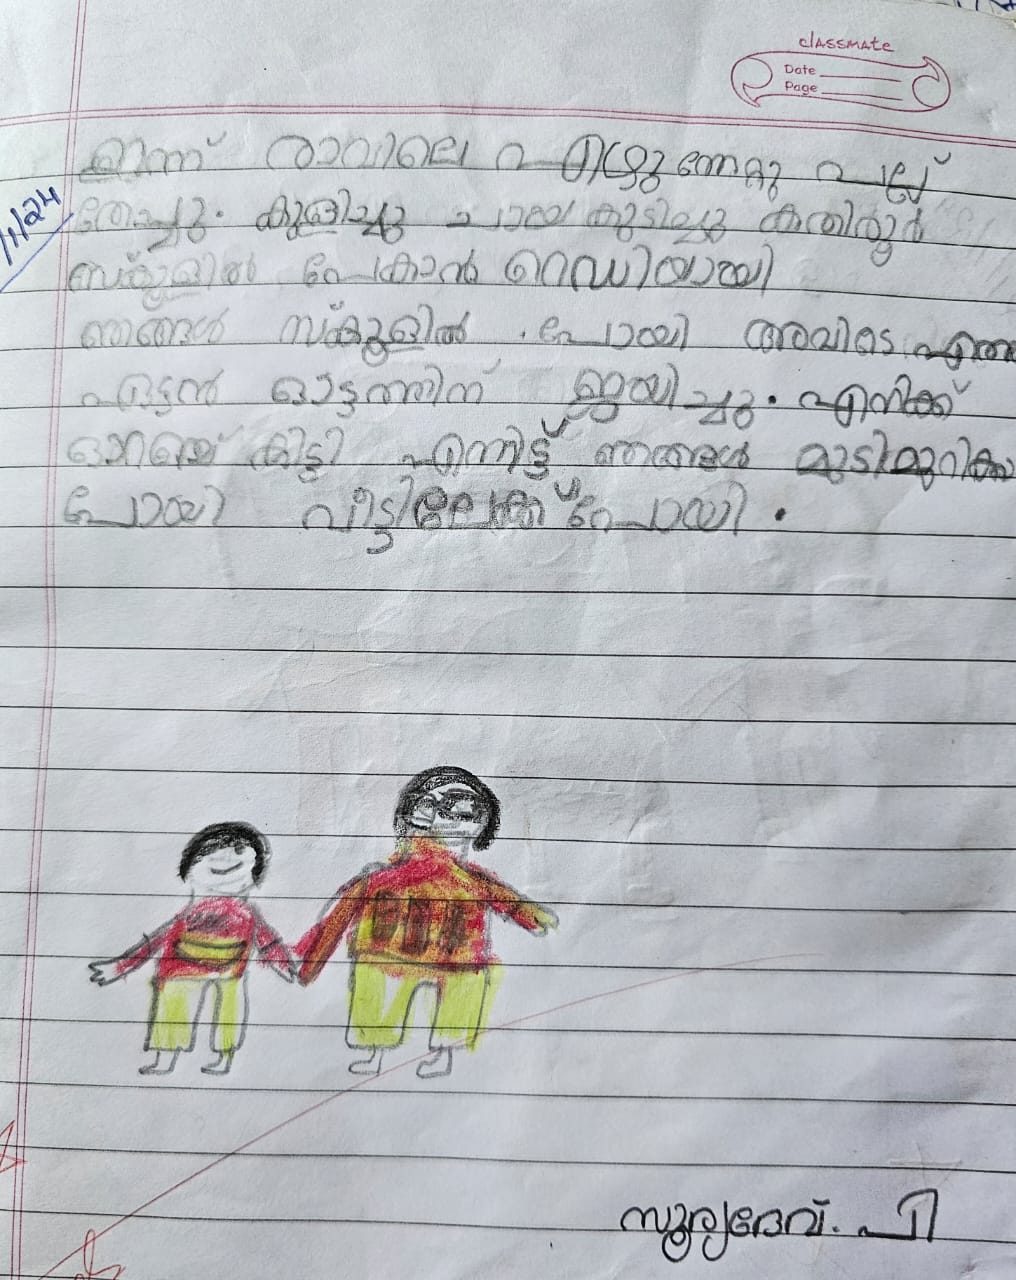 classmate
Date
Page
ഇന്ന് രാവിലെ എഴുന്നേറ്റു പല്ല്
/1/24
തേച്ചു. കുളിച്ചു ചായ കുടിച്ചു കതിരൂർ
സ്കൂളിൽ പോകാൻ റെഡിയായി
ഞങ്ങൾ സ്കൂളിൽ പോയി അവിടെ
ഓട്ടത്തിന് ജയിച്ചു. എനിക്ക്
കിട്ടി എന്നിട്ട് ഞങ്ങൾ
പോയി വീട്ടിലേക്ക് പോയി.
സൂര്യദേവ്. പി